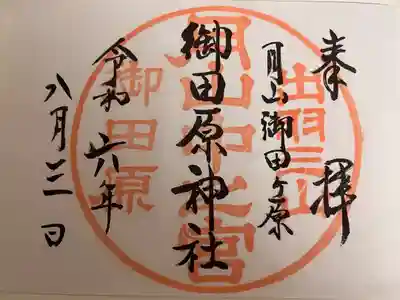 奉拝
月山御田ヶ原
御田原神社
令和六年
八月三日
出羽三山
月山中之宮
御田原